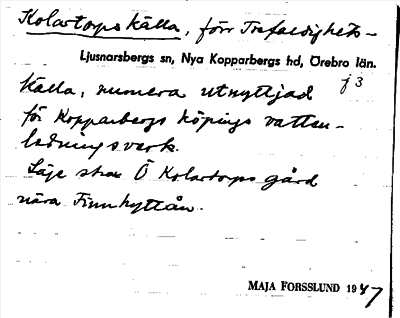 Kolartorps källa, förr Trefaldighets-
Ljusnarsbergs sn, Nya Kopparbergs hd, Örebro län.
j 3
källa, numera utnyttjad
för Kopparbergs köpings vatten-
ledningsverk.
Läge strax Ö Kolartorps gård
nära Finnhyttån.
MAJA FORSSLUND 1947